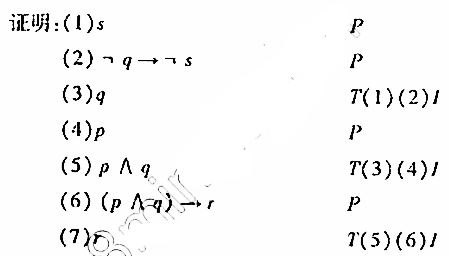 证明:(1)s P
(2)¬q→¬s P
(3)q T(1)(2)I
(4)p P
(5)p∧q T(3)(4)I
(6)(p∧q)→r P
(7)r T(5)(6)I